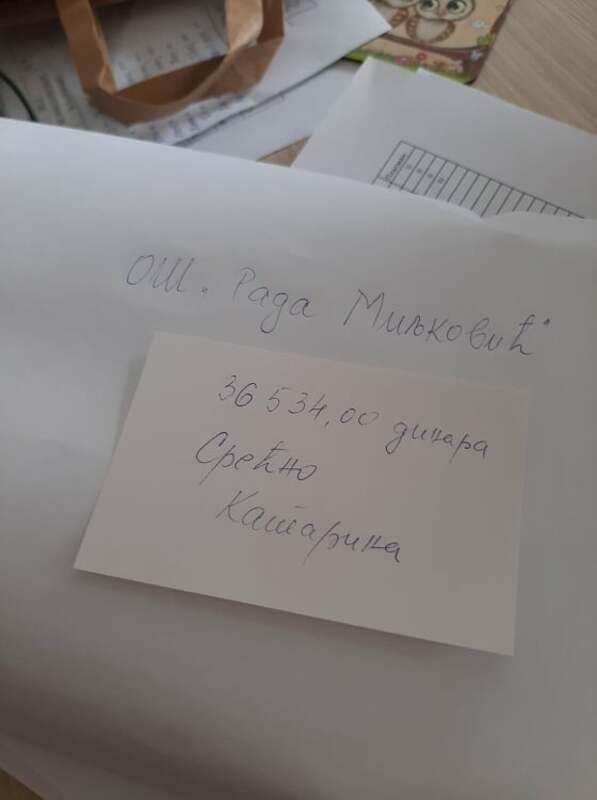 ОШ „Рада Миљковић"
36 534,00 динара
Срећно
Катарина